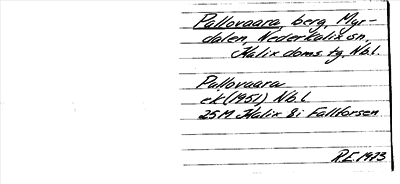 Pallovaara, berg, Myr-
dalen, Nederkalix sn,
Kalix doms. tg, Nb.l.
Pallovaara
ek (1951) Nb.l
25M Kalix 8i Fallforsen
R.E. 1973